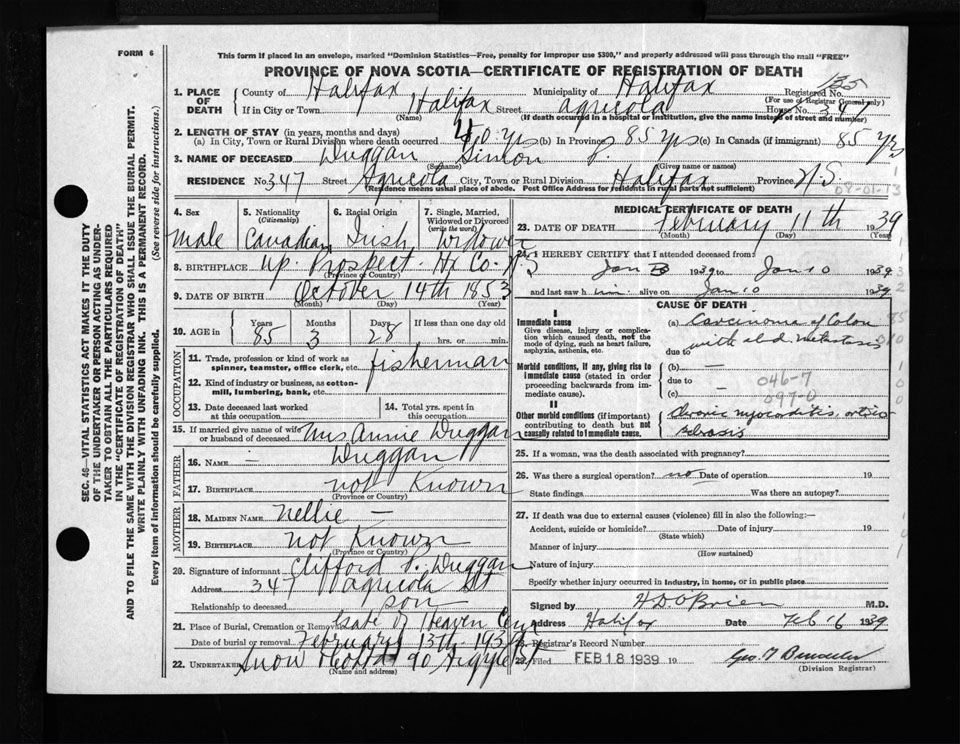 FORM 6
This form if placed in an envelope, marked "Dominion Statistics—Free, penalty for improper use $300," and properly addressed will pass through the mail "FREE"
PROVINCE OF NOVA SCOTIA—CERTIFICATE OF REGISTRATION OF DEATH
135
1. PLACE OF DEATH County of Halifax Municipality of Halifax Registered No.
(For use of Registrar General only)
If in City or Town Halifax Street Agricola House No. 347
(Name) (If death occurred in a hospital or institution, give the name instead of street and number)
2. LENGTH OF STAY (in years, months and days)
(a) In City, Town or Rural Division where death occurred 40 yrs (b) In Province 85 yrs (c) In Canada (if immigrant) 85 yrs
3. NAME OF DECEASED Duggan Simon P.
(Surname) (Given name or names)
RESIDENCE No. 347 Street Agricola City, Town or Rural Division Halifax Province N.S.
(Residence means usual place of abode. Post Office Address for residents in rural parts not sufficient)
09-01-13
4. Sex 5. Nationality (Citizenship) 6. Racial Origin 7. Single, Married, Widowed or Divorced (write the word)
male Canadian Irish Widower
8. BIRTHPLACE Up. Prospect. Hx Co. N.S
(Province or Country)
9. DATE OF BIRTH October 14th 1853
(Month) (Day) (Year)
10. AGE in Years Months Days If less than one day old
85 3 28 hrs. or min.
OCCUPATION
11. Trade, profession or kind of work as spinner, teamster, office clerk, etc. fisherman
12. Kind of industry or business, as cotton-mill, lumbering, bank, etc.
13. Date deceased last worked at this occupation
14. Total yrs. spent in this occupation
15. If married give name of wife or husband of deceased Mrs Annie Duggan
FATHER
16. Name — Duggan
17. Birthplace not Known
(Province or Country)
MOTHER
18. Maiden Name Nellie —
19. Birthplace not Known
(Province or Country)
20. Signature of informant Clifford S. Duggan
Address 347 Agricola St
Relationship to deceased son
21. Place of Burial, Cremation or Removal Gate of Heaven Cem
Date of burial or removal February 13th 1939
22. Undertaker Snow 90 Argyle St
(Name and address)
MEDICAL CERTIFICATE OF DEATH
23. DATE OF DEATH February 11th 1939
(Month) (Day) (Year)
24. I HEREBY CERTIFY that I attended deceased from:
Jan 3 1939 to Jan 10 1939
and last saw him alive on Jan 10 1939
CAUSE OF DEATH
I
Immediate cause
Give disease, injury or complication which caused death, not the mode of dying, such as heart failure, asphyxia, asthenia, etc.
(a) Carcinoma of Colon
with abd. metastasis
due to
Morbid conditions, if any, giving rise to immediate cause (stated in order proceeding backwards from immediate cause).
(b) —
due to
(c) —
046-7
097-0
II
Other morbid conditions (if important) contributing to death but not causally related to immediate cause.
Chronic myocarditis, arterio
sclerosis
25. If a woman, was the death associated with pregnancy?
26. Was there a surgical operation? no Date of operation 19
State findings Was there an autopsy?
27. If death was due to external causes (violence) fill in also the following:—
Accident, suicide or homicide? Date of injury 19
(State which)
Manner of injury
(How sustained)
Nature of injury
Specify whether injury occurred in industry, in home, or in public place
Signed by H D O'Brien M.D.
Address Halifax Date Feb 16 1939
Registrar's Record Number
Filed FEB 18 1939 19
(Division Registrar)
SEC. 46—VITAL STATISTICS ACT MAKES IT THE DUTY
OF THE UNDERTAKER OR PERSON ACTING AS UNDER-
TAKER TO OBTAIN ALL THE PARTICULARS REQUIRED
IN THE "CERTIFICATE OF REGISTRATION OF DEATH"
AND TO FILE THE SAME WITH THE DIVISION REGISTRAR WHO SHALL ISSUE THE BURIAL PERMIT.
WRITE PLAINLY WITH UNFADING INK. THIS IS A PERMANENT RECORD.
Every item of information should be carefully supplied. (See reverse side for instructions.)